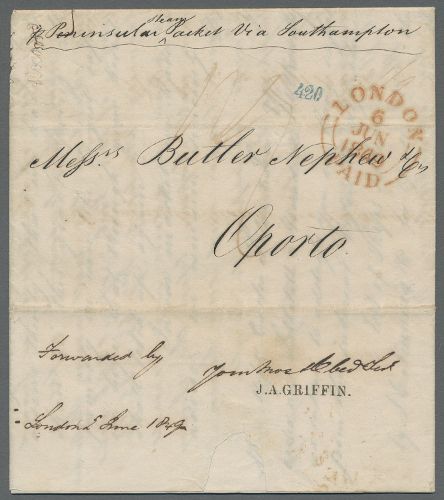 p Peninsular steam Packet Via Southampton
420
LONDON
6
JUN
PAID
Messrs Butler Nephew & Co
Oporto.
Forwarded by
Your Mos Obed Servt
J.A.GRIFFIN.
London June 184